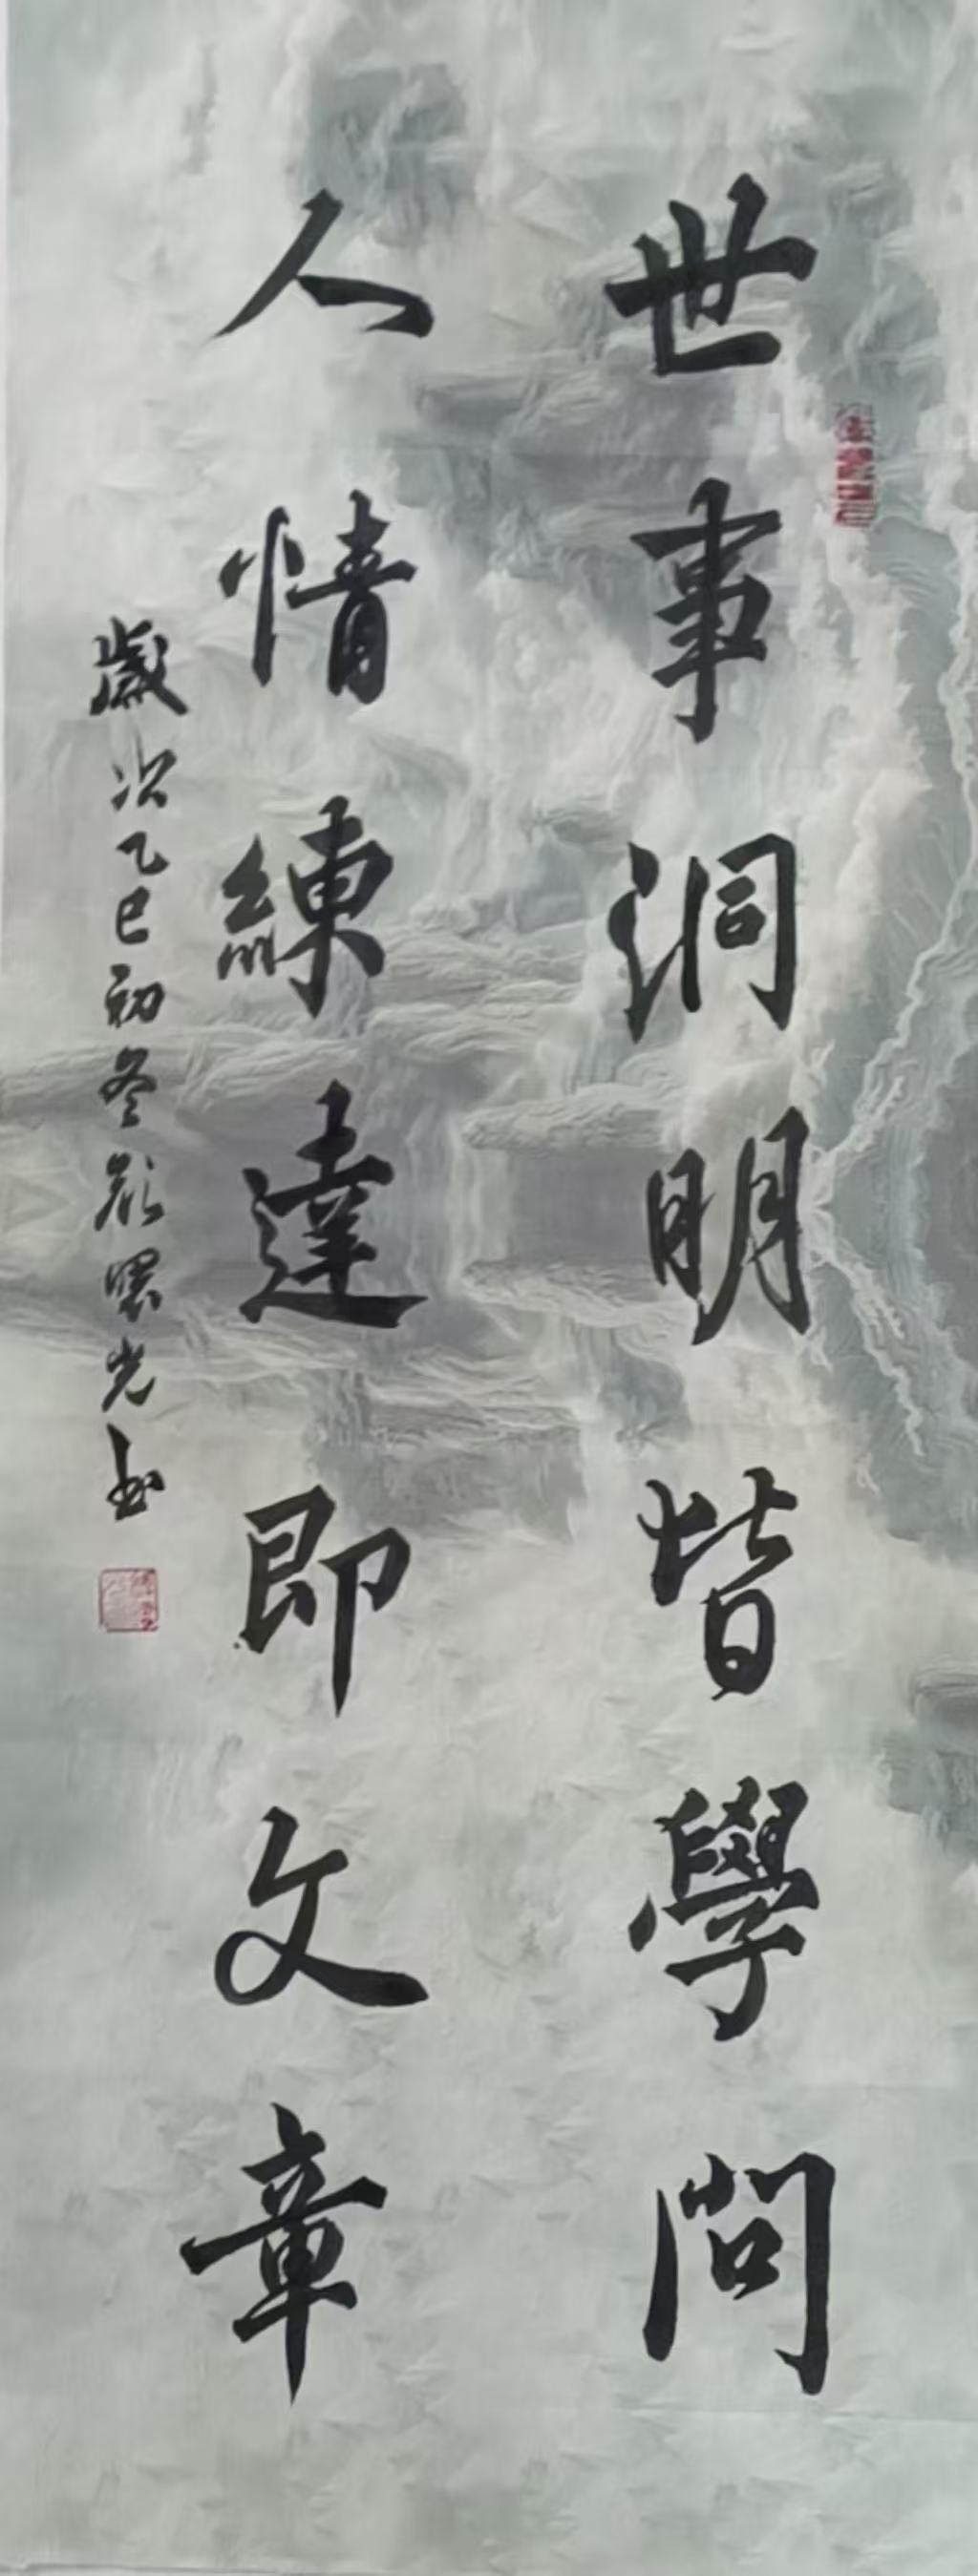 世事洞明皆學問
人情練達即文章
歲次乙巳初冬顏曙光书